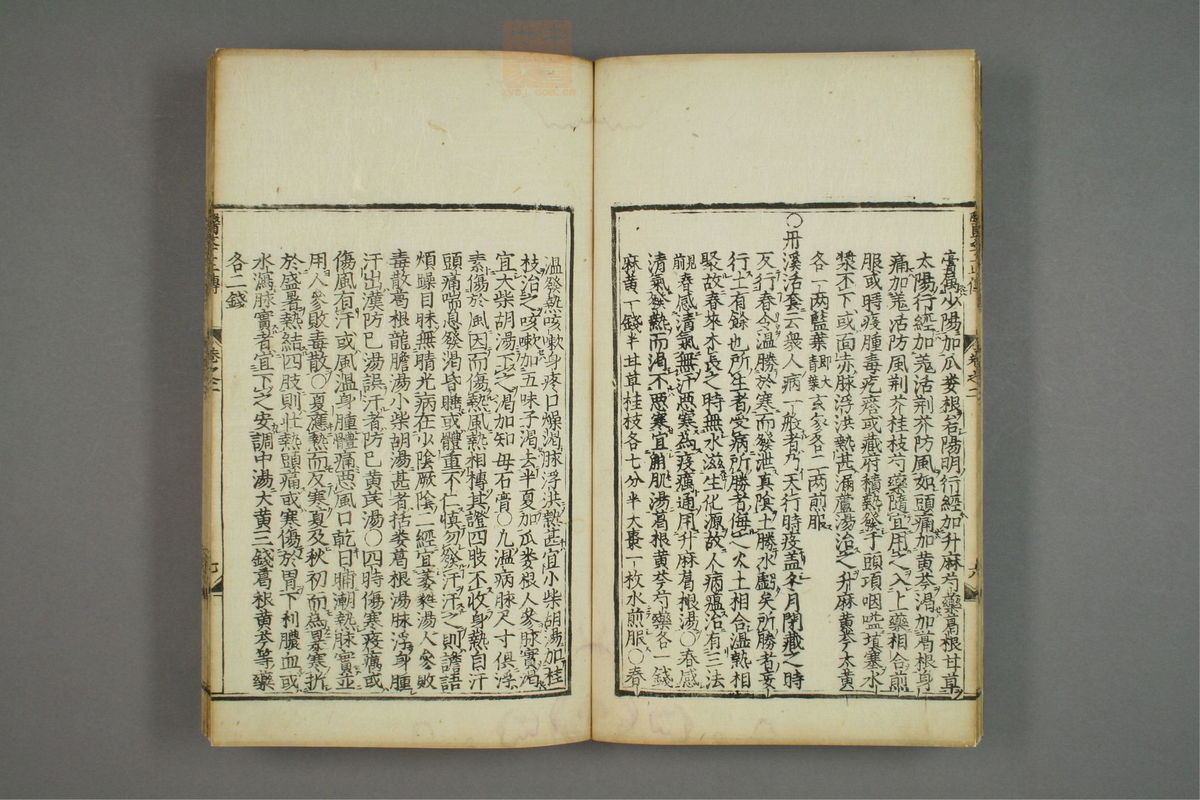 膏屬少陽加瓜蔞根若陽明行經加升麻芍藥葛根甘草
太陽行經加羗活荆芥防風如頭痛加黄芩渇加葛根身
痛加羗活防風荆芥桂枝芍藥隨宜用之入上藥相合煎
服或時疫腫毒疙瘩或藏府積熱發于頭項咽嗌填塞水
漿不下或面赤脉浮洪熱甚漏蘆湯治之升麻黄芩大黄
各一两藍葉即大青葉玄參各二两煎服
〇丹溪活套云衆人病一般者乃天行時疫盖冬月閉藏之時
反行春令温勝於寒而發泄真陰土勝水虧矣所勝者妄
行土有餘也所生者受病所勝者侮之火土相合温熱相
聚故春來木長之時無水滋生化源故人病瘟治有三法
見前春感清氣無汗惡寒為疫癘通用升麻葛根湯〇春感
清氣發熱而渇不惡寒宜解肌湯葛根黄芩芍藥各一錢
麻黄一錢半甘草桂枝各七分半大棗一枚水煎服〇春
温發熱咳嗽身疼口燥渇脉浮洪熱甚宜小柴胡湯加桂
枝治之咳嗽加五味子渇去半夏加瓜蔞根人參脉實渇
宜大柴胡湯下之渇加知母石膏〇九温病脉尺寸俱浮
素傷於風因而傷熱風熱相搏其證四肢不收身熱自汗
頭痛喘息發渇昏睡或體重不仁慎勿發汗汗之則譫語
煩躁目昧無睛光病在少陰厥陰二經宜葳蕤湯人參敗
毒散葛根龍膽湯小柴胡湯甚者括蔞葛根湯脉浮身腫
汗出漢防已湯誤汗者防已黄芪湯〇四時傷寒疫癘或
傷風有汗或風温身腫體痛惡風口乾日晡潮熱脉實並
用人參敗毒散〇夏應熱而反寒夏及秋初而為暴寒折
於盛暑熱結四肢則壮熱頭痛或寒傷於胃下利膿血或
水瀉脉實者宜下之安調中湯大黄三錢葛根黄芩等藥
各二錢
醫學正傳
卷之二